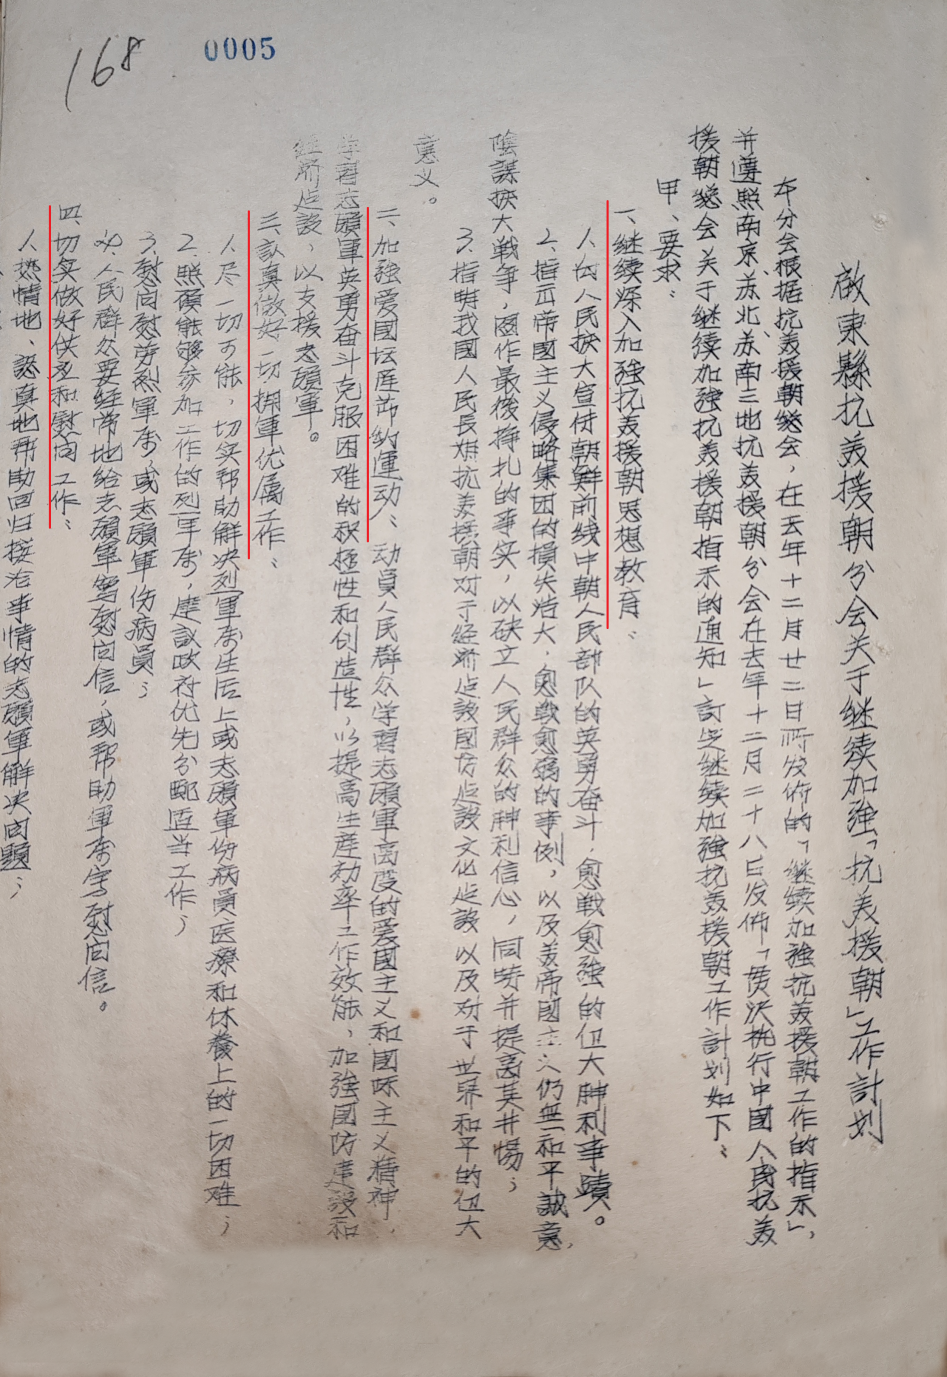 168
0005
啟東縣抗美援朝分会关于继续加強「抗美援朝」工作計划
本分会根据抗美援朝總会，在去年十二月廿二日所发佈的「继续加強抗美援朝工作的指示」，
并遵照南京、苏北、苏南三地抗美援朝分会在去年十二月二十八日发佈「貫决执行中國人民抗美
援朝總会关于继续加強抗美援朝指示的通知」訂定继续加強抗美援朝工作計划如下：
甲、要求：
一、继续深入加強抗美援朝思想教育：
1.向人民挾大宣付朝鮮前线中朝人民部队的英勇奋斗，愈戰愈強的伹大胜利事蹟。
2.指示帝國主义侵略集团的損失浩大，愈戰愈弱的事例，以及美帝國主义仍無和平誠意，
陰謀挾大戰争，圖作最後掙扎的事实，以砄立人民群众的胜利信心，同時并提高其井惕；
3.指明我國人民長期抗美援朝对于经济建設國防建設文化建設以及对于世界和平的伹大
意义。
二、加強爱國坛产节约運动：动員人民群众学習志願軍高度的爱國主义和國际主义精神，
学習志願軍英勇奋斗克服困难的积極性和创造性，以提高生産効率工作效能，加強國防建設和
经济建設，以支援志願軍。
三、認真做好一切拥軍优属工作：
1.尽一切可能，切实帮助解决烈軍属生活上或志願軍伤病員医療和休養上的一切困难；
2.照顧能够参加工作的烈軍属，建議政府优先分配适当工作；
3.慰问慰劳烈軍属，或志願軍伤病員；
4.人民群众要经常地给志願軍写慰问信，或帮助軍属写慰问信。
四、切实做好供应和慰问工作：
1.热情地、認真地帮助回归接洽事情的志願軍解决问题；